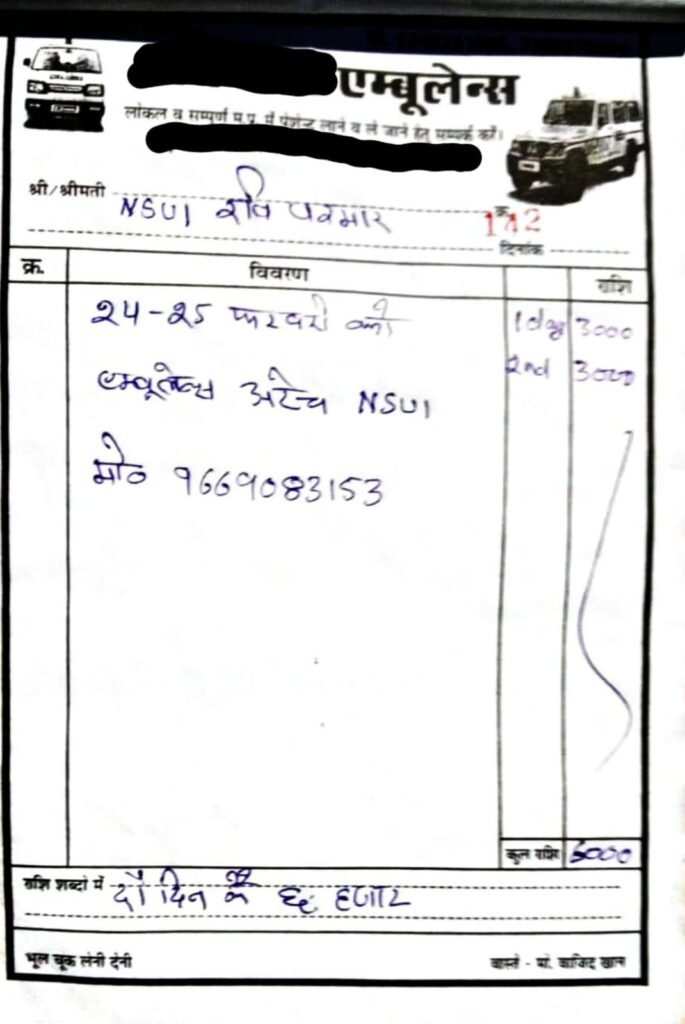 एम्बूलेन्स
लोकल व सम्पूर्ण म.प्र. में पेशेन्ट लाने व ले जाने हेतु सम्पर्क करें।
श्री/श्रीमती NSUI रवि परमार क्र. 142
दिनांक
क्र. विवरण राशि
24-25 फरवरी को 1 day 3000
एम्बूलेन्स अटेच NSUI 2nd 3000
मो० 9669083153
कुल राशि 6000
राशि शब्दों में दो दिन के छः हजार
भूल चूक लेनी देनी वास्ते - मो. वाजिद खान